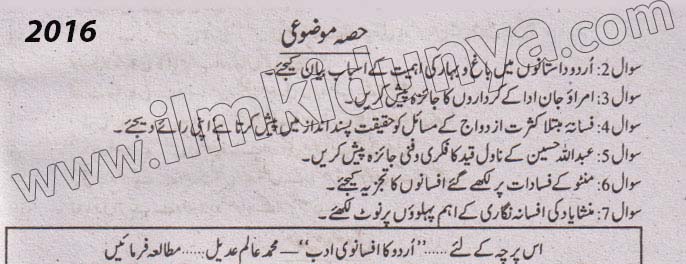 2016
حصہ موضوعی
سوال 2: اُردو داستانوں میں باغ و بہار کی اہمیت کے اسباب بیان کیجئے۔
سوال 3: امراؤ جان ادا کے کرداروں کا جائزہ پیش کریں۔
سوال 4: فسانہ مبتلا کثرت ازدواج کے مسائل کو حقیقت پسند انداز میں پیش کرتا ہے اپنی رائے دیجئے۔
سوال 5: عبداللہ حسین کے ناول قید کا فکری و فنی جائزہ پیش کریں۔
سوال 6: منٹو کے فسادات پر لکھے گئے افسانوں کا تجزیہ کیجئے۔
سوال 7: منشا یاد کی افسانہ نگاری کے اہم پہلوؤں پر نوٹ لکھئے۔
اس پرچہ کے لئے ...... ”اُردو کا افسانوی ادب“ — محمد عالم عدیل ...... مطالعہ فرمائیں
www.ilmkidunya.com